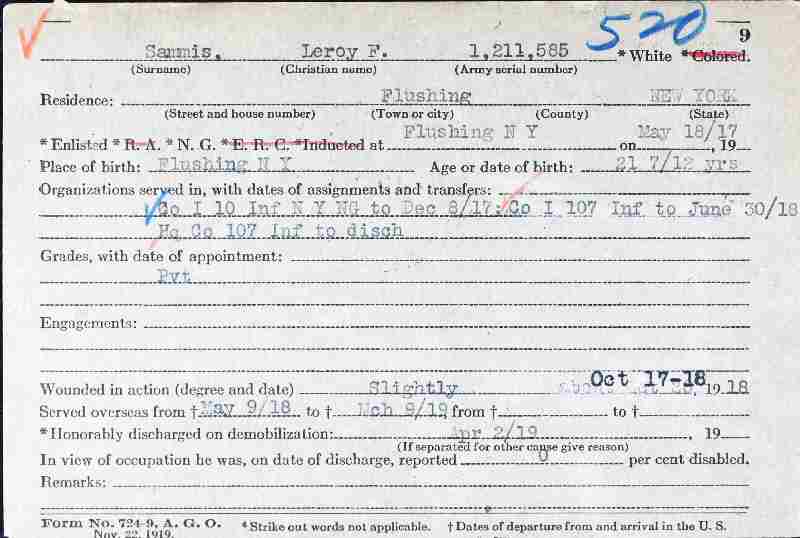 520
9
Sammis, Leroy F. 1,211,585 * White * Colored.
(Surname) (Christian name) (Army serial number)
Residence: Flushing NEW YORK
(Street and house number) (Town or city) (County) (State)
Flushing N Y May 18/17
* Enlisted * R. A. * N. G. * E. R. C. * Inducted at on , 19
Place of birth: Flushing N Y Age or date of birth: 21 7/12 yrs
Organizations served in, with dates of assignments and transfers:
Co I 10 Inf N Y NG to Dec 8/17; Co I 107 Inf to June 30/18
Hq Co 107 Inf to disch
Grades, with date of appointment:
Pvt
Engagements:
Wounded in action (degree and date) Slightly Oct 17-18, 19 18
Served overseas from † May 9/18 to † Mch 9/19, from † to †
* Honorably discharged on demobilization: Apr 2/19 , 19
(If separated for other cause give reason)
In view of occupation he was, on date of discharge, reported 0 per cent disabled.
Remarks:
Form No. 724-9, A. G. O. * Strike out words not applicable. † Dates of departure from and arrival in the U. S.
Nov. 22, 1919.